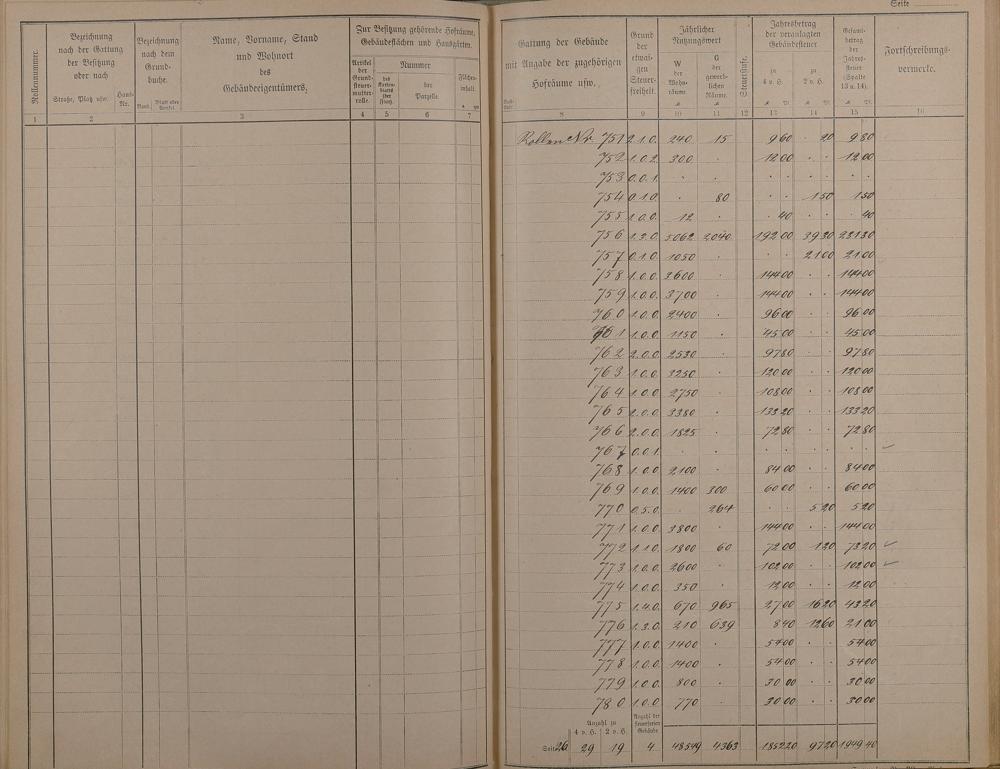 Seite
Rollennummer.
Bezeichnung
nach der Gattung
der Besitzung
oder nach
Straße, Platz usw.
Haus-
Nr.
Bezeichnung
nach dem
Grund-
buche.
Band.
Blatt oder
Artikel.
Name, Vorname, Stand
und Wohnort
des
Gebäudeeigentümers.
Zur Besitzung gehörende Hofräume,
Gebäudeflächen und Hausgärten.
Artikel
der
Grund-
steuer-
mutter-
rolle.
Nummer
des
Karten-
blattes
der
Parzelle.
Flächen-
inhalt.
1 2 3 4 5 6 7
Gattung der Gebäude
mit Angabe der zugehörigen
Hofräume usw.
Grund
der
etwai-
gen
Steuer-
freiheit.
Jährlicher
Nutzungswert
W
der
Wohn-
räume
G
der
gewerb-
lichen
Räume.
Steuerstufe.
Jahresbetrag
der veranlagten
Gebäudesteuer
zu
4 v. H.
zu
2 v. H.
Gesamt-
betrag
der
Jahres-
steuer
(Spalte
13 u. 14).
Fortschreibungs-
vermerke.
8 9 10 11 12 13 14 15 16
Rollen Nr. 751 2.1.0. 240 15 9 60 . 20 9 80
752 1.0.2. 300 . 12 00 . . 12 00
753 0.0.1. . . . . . . . .
754 0.1.0. . 80 . . 1 50 1 50
755 1.0.0. 12 . . 40 . . . 40
756 1.3.0. 5062 2040 192 00 39 30 231 30
757 0.1.0. 1050 . . 21 00 21 00
758 1.0.0. 3600 . 144 00 . . 144 00
759 1.0.0. 3700 . 144 00 . . 144 00
760 1.0.0. 2400 . 96 00 . . 96 00
761 1.0.0. 1150 . 45 00 . . 45 00
762 2.0.0. 2530 . 97 80 . . 97 80
763 1.0.0. 3250 . 120 00 . . 120 00
764 1.0.0. 2750 . 108 00 . . 108 00
765 2.0.0. 3380 . 133 20 . . 133 20
766 2.0.0. 1825 . 72 80 . . 72 80
767 0.0.1. . . . . . . . .
768 1.0.0 2100 . 84 00 . . 84 00
769 1.0.0. 1400 300 60 00 . . 60 00
770 0.5.0. . 264 . . 5 20 5 20
771 1.0.0. 3800 . 144 00 . . 144 00
772 1.1.0. 1800 60 72 00 1 20 73 20
773 1.0.0. 2600 . 102 00 . . 102 00
774 1.0.0. 350 . 12 00 . . 12 00
775 1.4.0. 670 965 27 00 16 20 43 20
776 1.3.0. 210 639 8 40 12 60 21 00
777 1.0.0. 1400 . 54 00 . . 54 00
778 1.0.0. 1400 . 54 00 . . 54 00
779 1.0.0. 800 . 30 00 . . 30 00
780 1.0.0. 770 . 30 00 . . 30 00
Anzahl zu
4 v. H. 2 v. H.
Anzahl der
steuerfreien
Gebäude
Seite 26 29 19 4 48549 4363 1852 20 97 20 1949 40